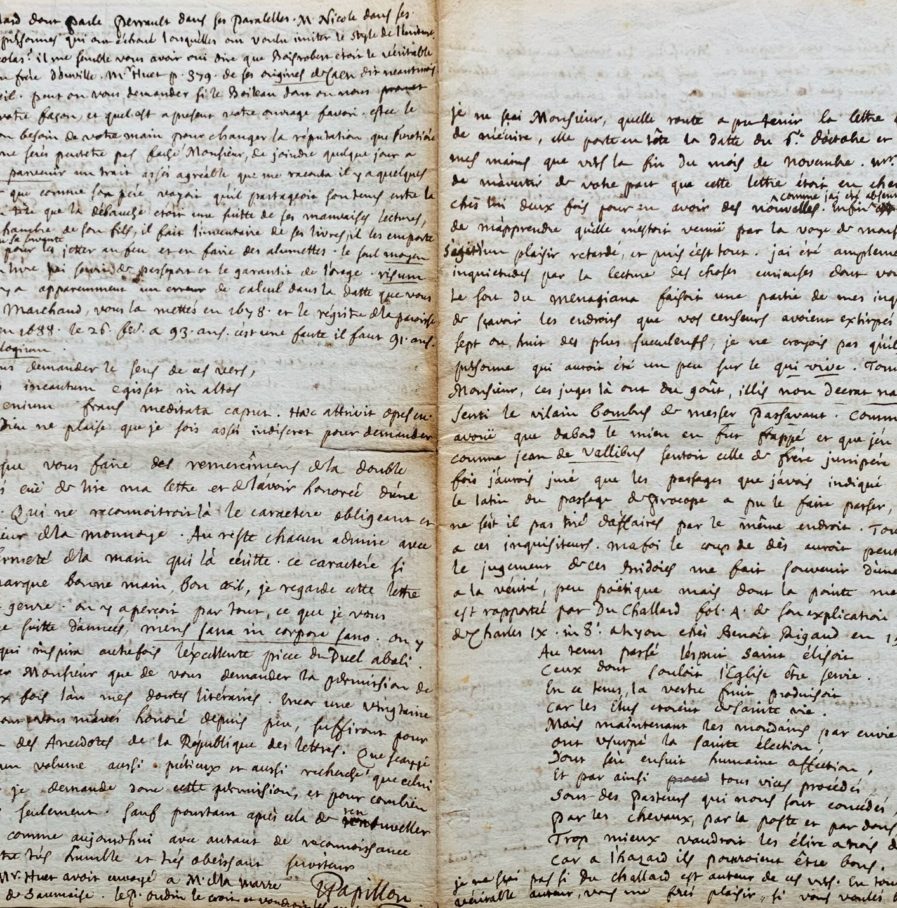 dont parle Perrault dans ses paralelles. Mr Nicole dans ses
personnes qui ont échoué lorsquelles ont voulu imiter le style de
il me semble vous avoir oui dire que Boisrobert étoit le véritable
frère Douville. Mr Huet p. 379. de ses origines de Caen dit neantmoins
peut on vous demander si le Boileau dont on nous
votre façon, et quel est a present votre ouvrage favori. est ce le
on besoin de votre main pour changer la réputation que
ne serés peutetre pas faché Monsieur, de joindre quelque jour a
parvenir un trait assés agréable que me raconta il y a quelques
que comme son père voyoit qu'il partageoit son tems entre la
que la débauche étoit une suitte de ses mauvaises lectures,
chambre de son fils, il fait l'inventaire de ses livres, il les emporte
pour les jetter au feu et en faire des alumettes. le seul moyen
livre de passeport et le garantir de l'orage. risum
y a apparemment un erreur de calcul dans la datte que vous
Marchand, vous la mettés en 1678. et le régistre de la paroisse
en 1688. le 26. fev. a 93. ans. c'est une faute il faut 91. ans.
vous demander le sens de ces vers,
incautum egisset in altos
fraus meditata caput. Haec attrivit opes
Dieu ne plaise que je sois assés indiscret pour demander
que vous faire des remercimens de la double
eüe de lire ma lettre et de l'avoir honorée d'une
Qui ne reconnoitroit là le caractère obligeant et
de la monnoye. Au reste chacun admire avec
fermeté de la main qui l'a écritte. ce caractère si
marque bonne main, bon œil, je regarde cette lettre
genre. on y aperçoit par tout, ce que je vous
suitte d'années, mens sana in corpore sano. on y
qui inspira autrefois l'excellente pièce du Duel aboli
Monsieur que de vous demander la permission de
fois l'an mes doutes litéraires. encor une vingtaine
vous m'avés honoré depuis peu, suffiront pour
des Anecdotes de la République des lettres. Que
un volume aussi prétieux et aussi recherché que celui
je demande donc cette permission, et pour combien
seulement. sauf pourtant après cela de renouveller
comme aujourdhui avec autant de reconnoissance
très humble et très obeissant serviteur
Mr Huet avoit envoyé a M. de la marre
Papillon
de Saumaise. le P. oudin le croit et
je ne sçai Monsieur, quelle route a pu tenir la lettre
de m'écrire, elle porte en tête la datte du 6e. Octobre et
mes mains que vers la fin du mois de novembre. Mr.
de m'avertir de votre part que cette lettre étoit en
comme j'ai été
chés lui deux fois pour en avoir des nouvelles. Enfin
de m'apprendre qu'elle m'estoit venue par la voye de
un plaisir retardé, et puis c'est tout. j'ai été amplement
inquietudes par la lecture des choses curieuses dont
Le sort du menagiana faisoit une partie de mes
de sçavoir les endroits que vos censeurs avoient extirpés
sept ou huit des plus succulents, je ne croyois pas qu'il
personne qui auroit été un peu sur le qui vive.
Monsieur, ces juges là ont du goût, illis non deerat
senti le vilain bombus de messer Passavant.
avoüe que dabord le mien en fut frappé et que j'en
comme jean de Vallibus sentoit celle de frère junipère
fois j'aurois juré que les passages que j'avois indiqué
le latin du passage de Procope a pu le faire passer,
ne s'est il pas tiré d'affaires par le même endroit.
a ces inquisiteurs. ma foi le coup de dés auroit
le jugement de ces Bridoies me fait souvenir d'une
a la vérité, peu poëtique mais dont la pointe
est rapporté par Du Challard fol. 4. de son explication
de Charles IX. in 8°. a Lyon chés Benoît Rigaud en
Au tems passé l'esprit saint élisoit
Ceux dont souloit l'Eglise être servie.
En ce tems, la vertu fruit produisoit
Car les Elus étoient de sainte vie.
Mais maintenant les mondains par envie
ont usurpé la sainte élection,
Dont s'en ensuit humaine affection,
Et par ainsi tous vices procédés,
Sont des pasteurs qui nous sont concedés
par les chevaux, par la poste et par dons
Trop mieux vaudroit les élire a trois dés
Car a l'hazard ils pourroient être bons.
je ne sçai pas si du Challard est auteur de ces vers.
véritable auteur, vous me ferés plaisir, si vous voulés